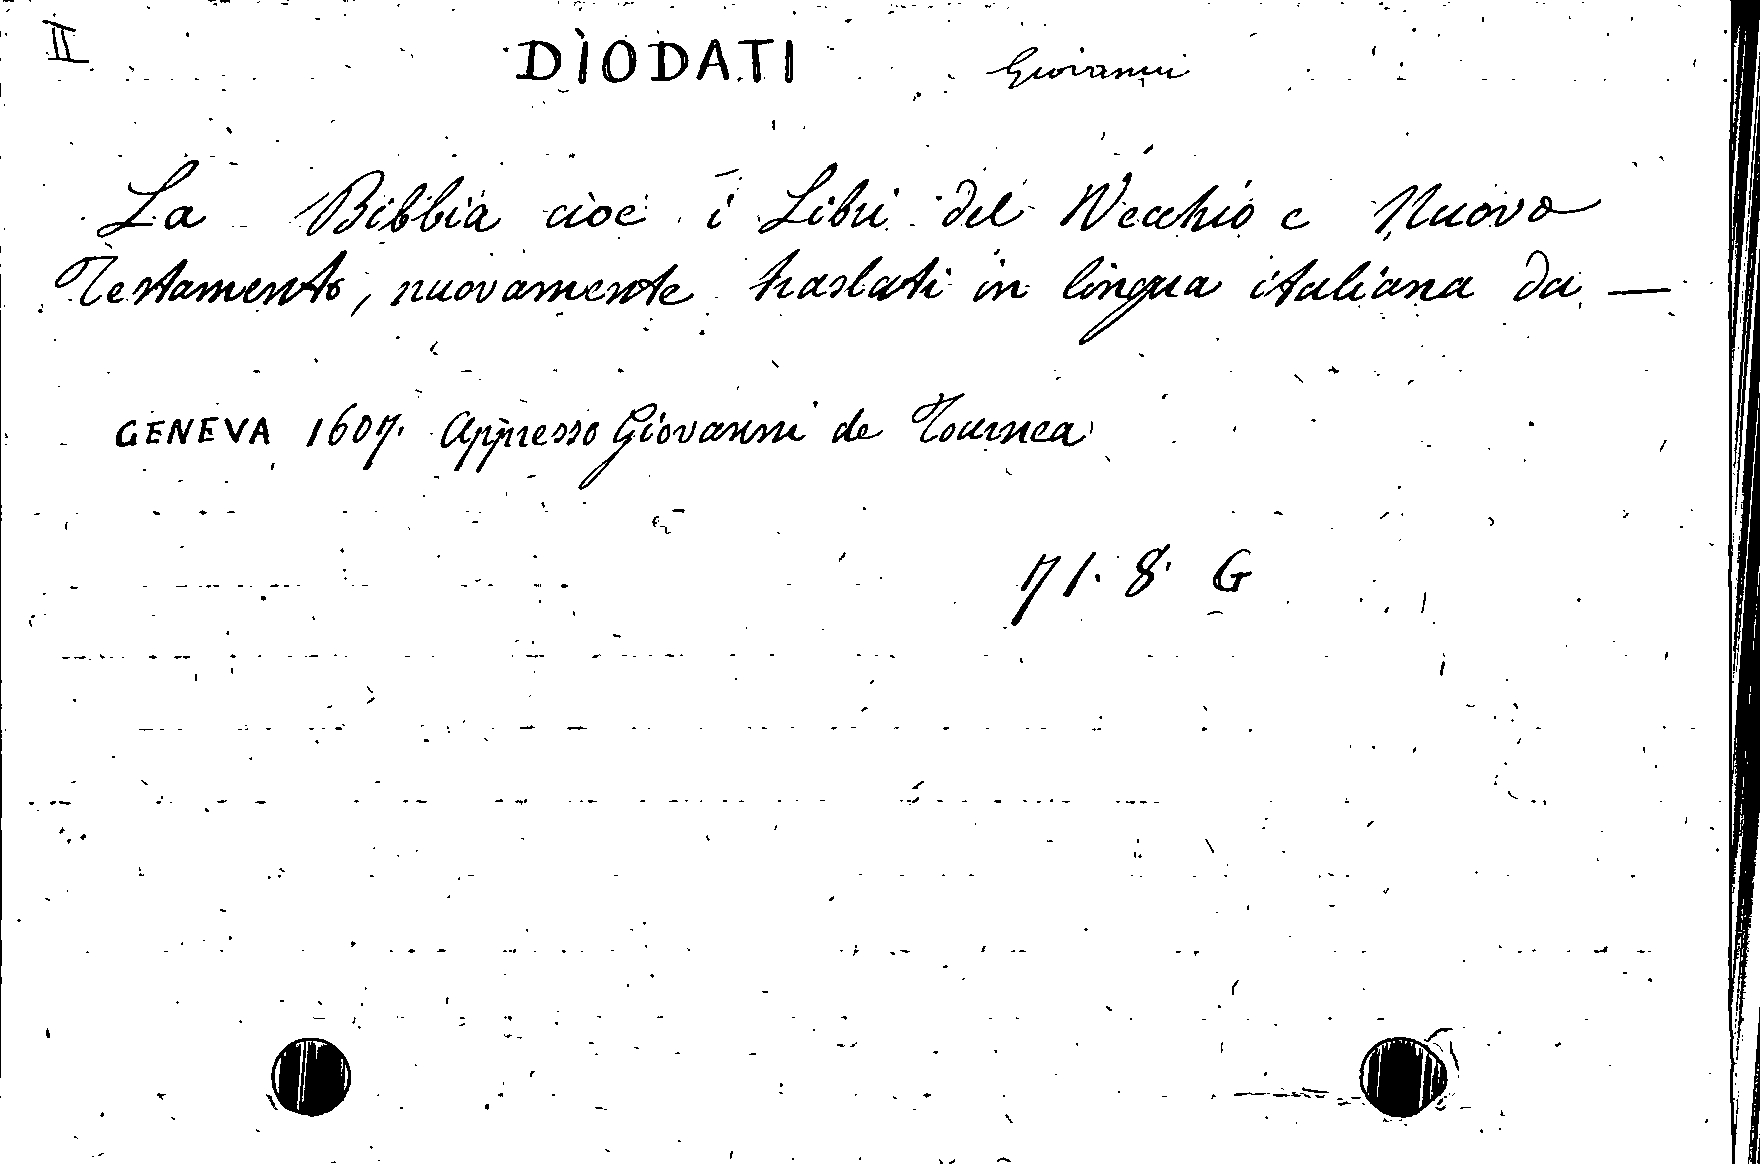 II DIODATI Giovanni
La Bibbia cioe i Libri del Vecchio e Nuovo
Testamento, nuovamente traslati in lingua italiana da —
GENEVA 1607. Appresso Giovanni de Tournea
71. 8. G